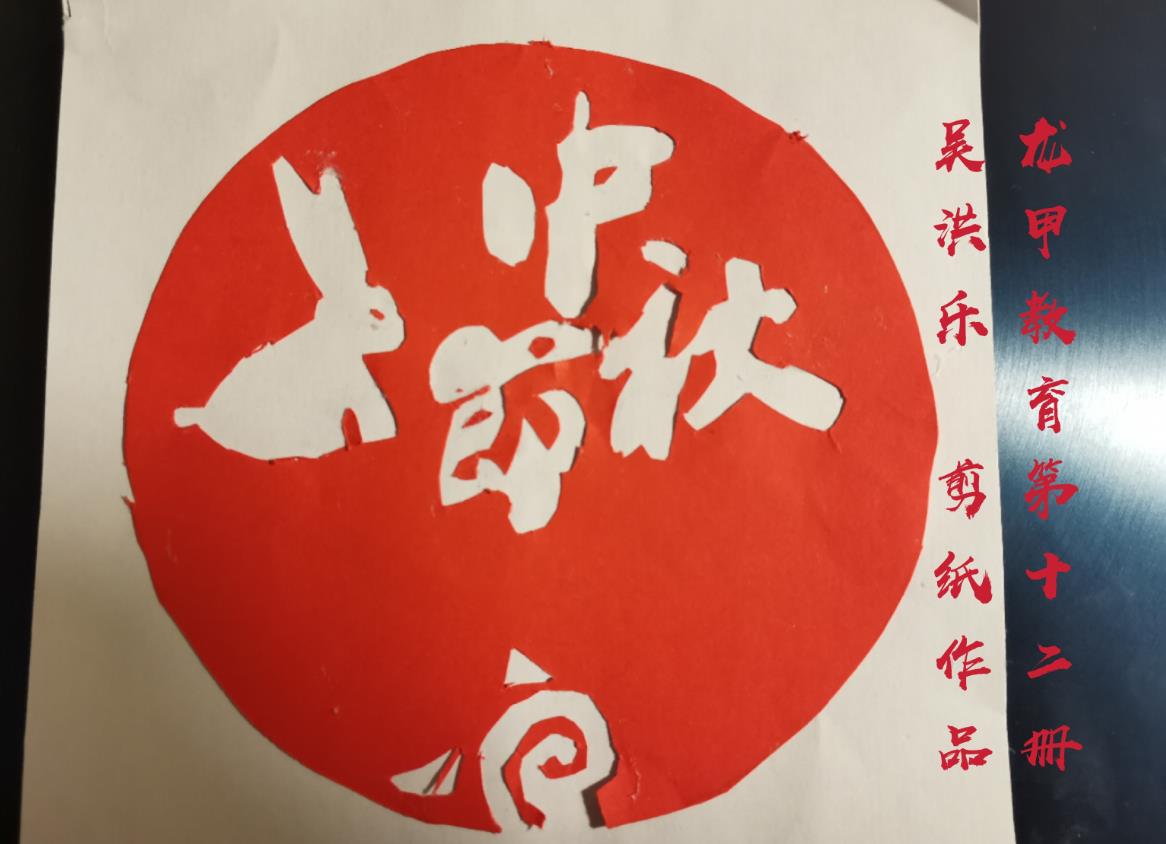 龙甲教育第十二册
吴洪乐 剪纸作品
中秋